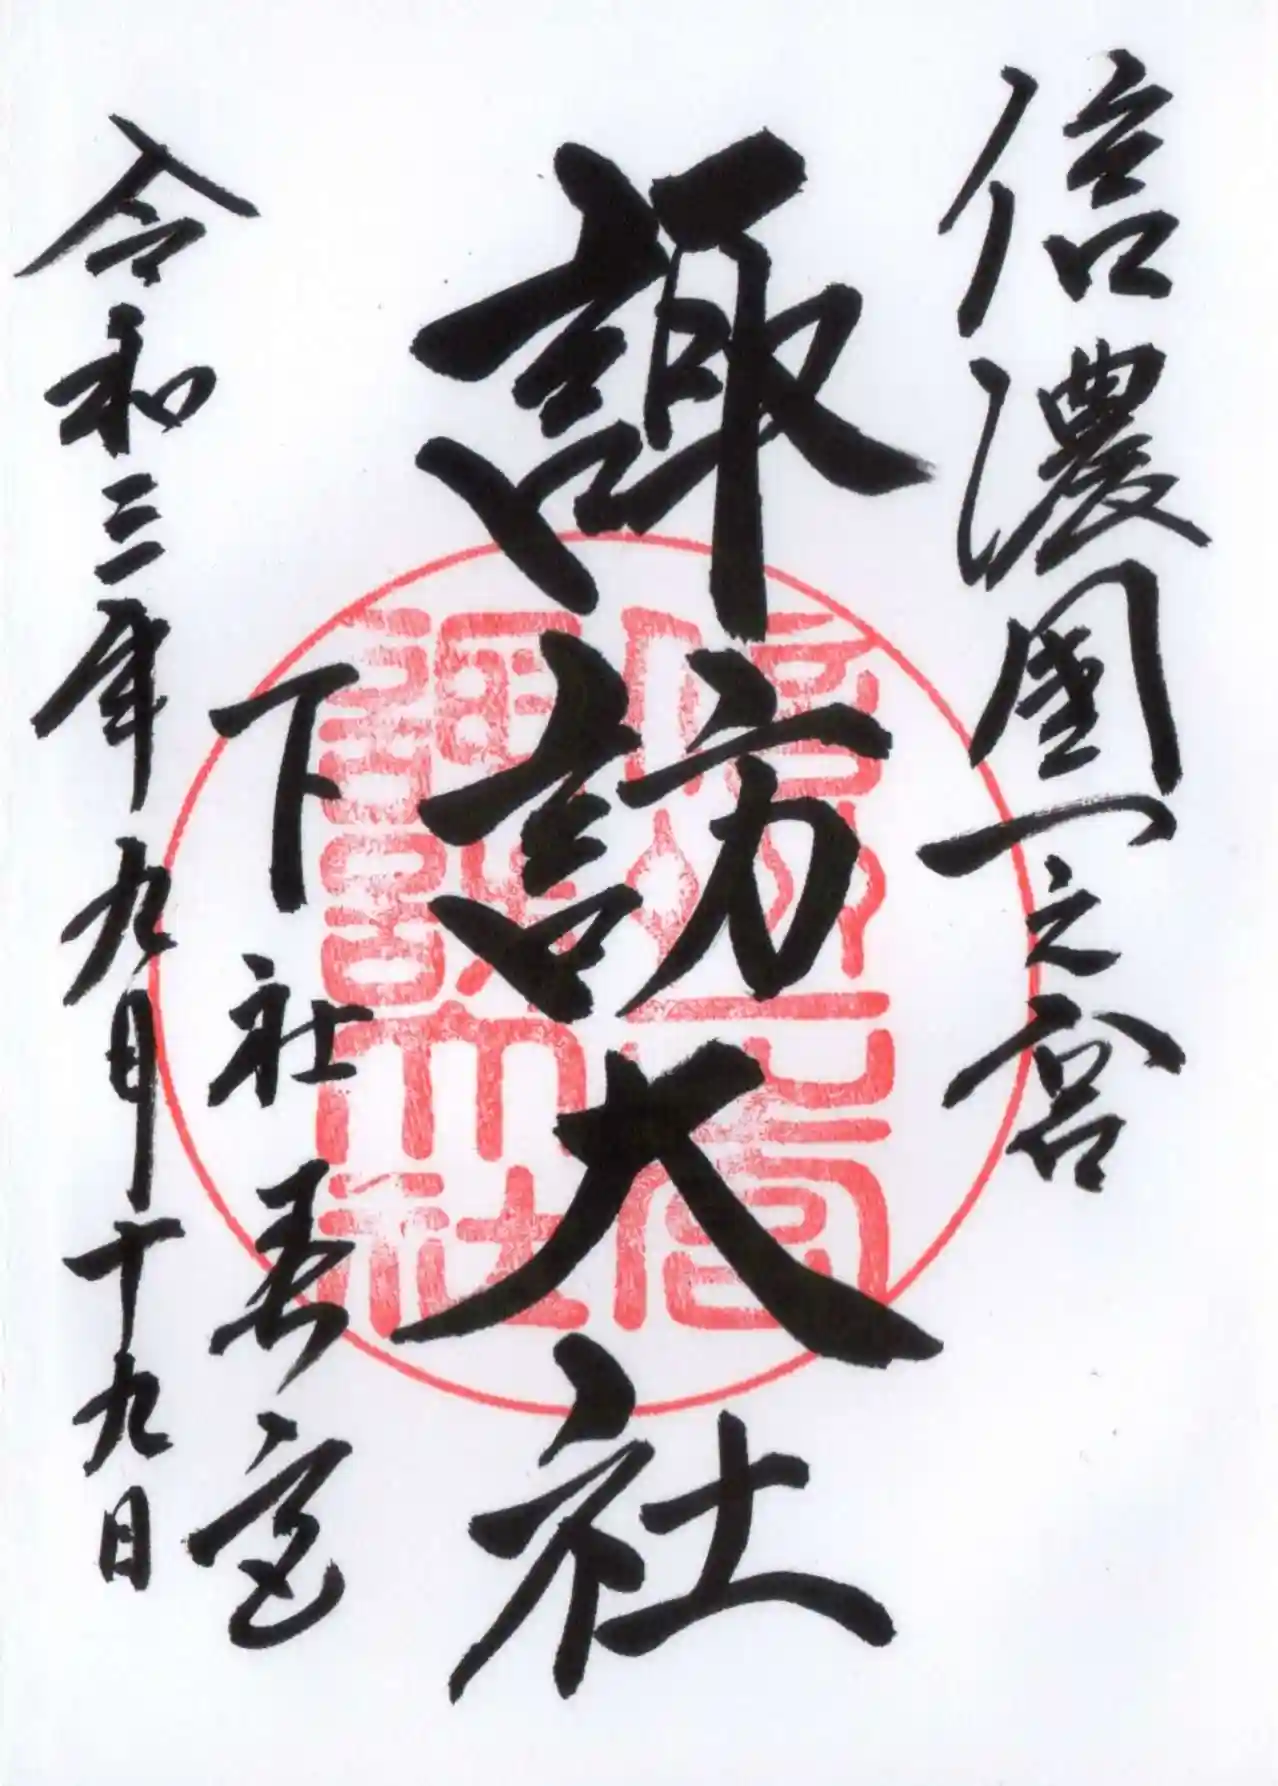 信濃國一之宮
諏訪大社
下社春宮
令和三年九月十九日
信州一之宮
諏訪大社